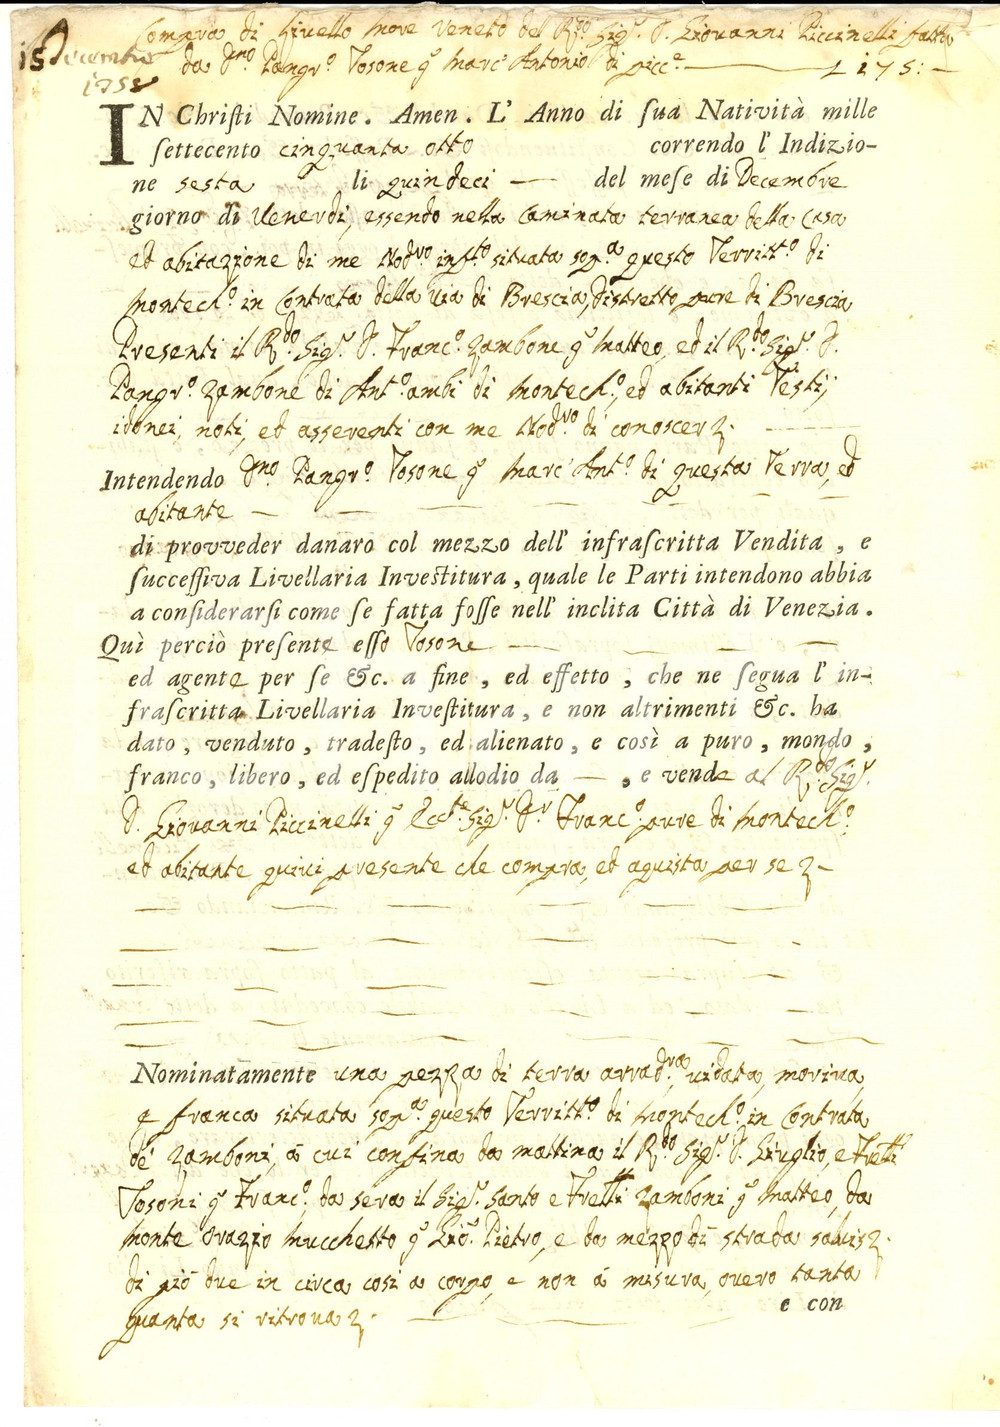 Compra di livello more veneto del R.do Sig.r D. Giovanni Piccinelli fatta
15 Decembre da D.no Pangr.o Tosone q. Marc' Antonio di picc.a — L 175: —
1758
IN Christi Nomine. Amen. L' Anno di ſua Natività mille
ſettecento cinquanta otto correndo l' Indizio-
ne sesta li quindeci — del meſe di Decembre
giorno di Venerdi, essendo nella Caminata terranea della Casa
ed abitazione di me Nod.ro inf.to situata sop.a questo Territt.o di
Montech.o in Contrata della Via di Brescia, Distretto pure di Brescia
Presenti il R.do Sig.r D. Franc.o Zambone q. Matteo, ed il R.do Sig.r D.
Pangr.o Zambone di Ant.o ambi di Montech.o, ed abitanti Testij
idonei, noti, ed asserenti con me Nod.ro di conoscer &.
Intendendo D.no Pangr.o Tosone q. Marc' Ant.o di questa Terra, ed
abitante —
di provveder danaro col mezzo dell' infraſcritta Vendita, e
ſucceſſiva Livellaria Inveſtitura, quale le Parti intendono abbia
a conſiderarſi come ſe fatta foſſe nell' inclita Città di Venezia.
Quì perciò preſente eſſo Tosone —
ed agente per ſe &c. a fine, ed effetto, che ne ſegua l' in-
fraſcritta Livellaria Inveſtitura, e non altrimenti &c. ha
dato, venduto, tradeſto, ed alienato, e così a puro, mondo,
franco, libero, ed eſpedito allodio da —, e vende al R.do Sig.r
D. Giovanni Piccinelli q. Ecc.te Sig.r D.r Franc.o pure di Montech.o
ed abitante quivi presente che compra, ed aquista per se &. —
Nominatamente una pezza di terra arrad.va, vidata, moriva,
e franca situata sop.a questo Territt.o di Montech.o in Contrata
de' Zamboni, à cui confina da mattina il R.do Sig.r D. Giuglio, e Fretti
Tosoni q. Franc.o, da sera il Sig.r Santo e Fretti Zamboni q. Matteo, da
monte Orazio Mucchetto q. Gio. Pietro, e da mezzo dì strada salvis &.
di piò due in circa cosi a corpo, e non à misura, overo tanta
quanta si ritrova &.
e con